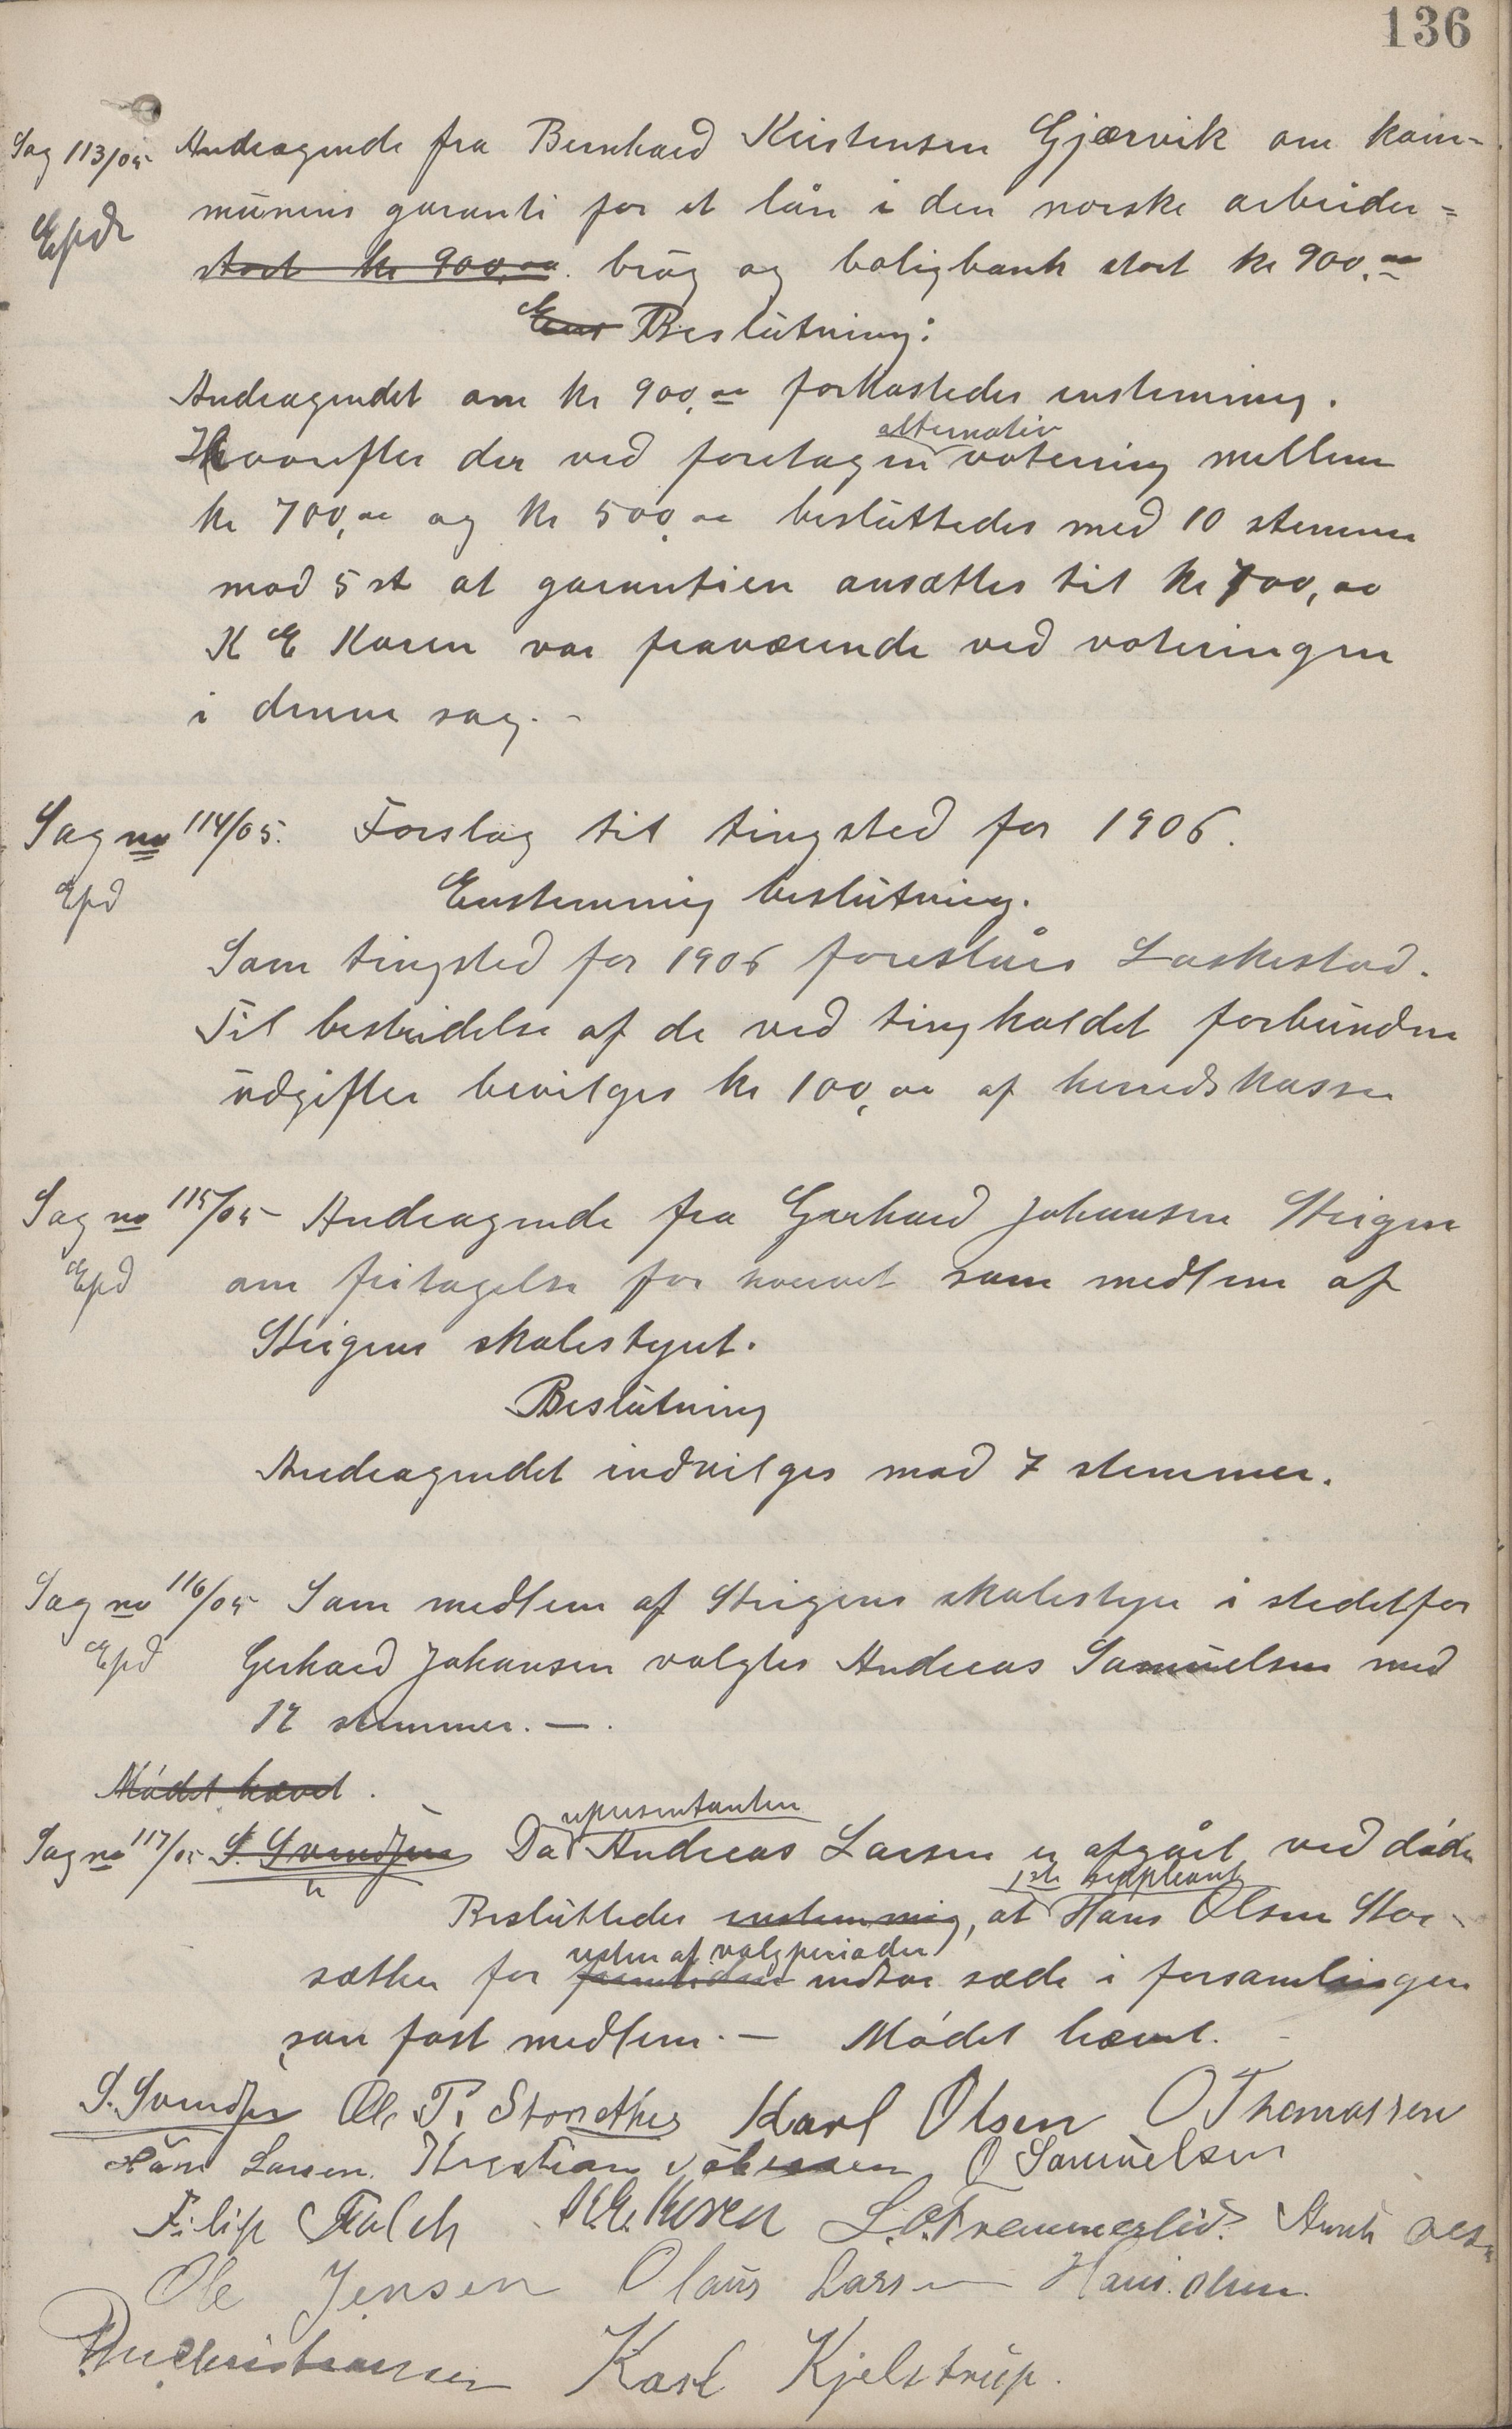 136
Sag 113/05 Andragende fra Bernhard Kristensen Gjærvik om kom-
Expd munens garanti for et lån i den norske arbeider=
stort kr 900,00. brug og boligbank stort kr 900,00
Ens Beslutning:
Andragendet om kr 900,00 forkastedes enstemmig.
alternativ
Hvorefter der ved foretagen votering mellem
kr 700,00 og kr 500,00 besluttedes med 10 stemmer
mod 5 st at garantien ansættes til kr 700,00
K E Koren var fraværende ved voteringen
i denne sag. -
Sag no 114/05. Forslag til tingsted for 1906.
Expd Enstemmig beslutning.
Som tingsted for 1906 foreslåes Laskestad.
Til bestridelse af de ved tingholdet forbundne
udgifter bevilges kr 100,00 af herredskassen
Sag no 115/05 - Andragende fra Gerhard Johansen Steigen
Expd om fritagelse for hvervet som medlem af
Steigens skolestyret.
Beslutning
Andragendet indvilges mod 7 stemmer.
Sag no 116/05 Som medlem af Steigens skolestyre i stedetfor
Expd Gerhard Johansen valgtes Andreas Samuelsen med
12 stemmer. -.
Mødet hævet.
representanten
Sag no 117/05 S. Svendsen Da Andreas Larsen er afgået ved døden
1ste suppleant
Besluttedes enstemmig, at Hans Olsen Stor-
resten af valgperioden
sæther for fremtiden indtar sæde i forsamlingen
som fast medlem. - Mødet hævet. -
S. Svendsen Ole P. Storsether Karl Olsen O Thomassen
Hans Larsen. Kristian Johansen O Samuelsen
Filip Falch K.E. Koren L.O. Fremmerlid. Arnt Olsen
Ole Jensen Olaus Larsen Hans. Olsen.
Christiansen Karl Kjelstrup.